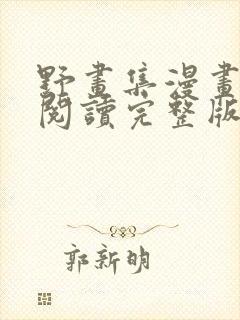 野畫集漫畫
閱讀完整版
郭新明